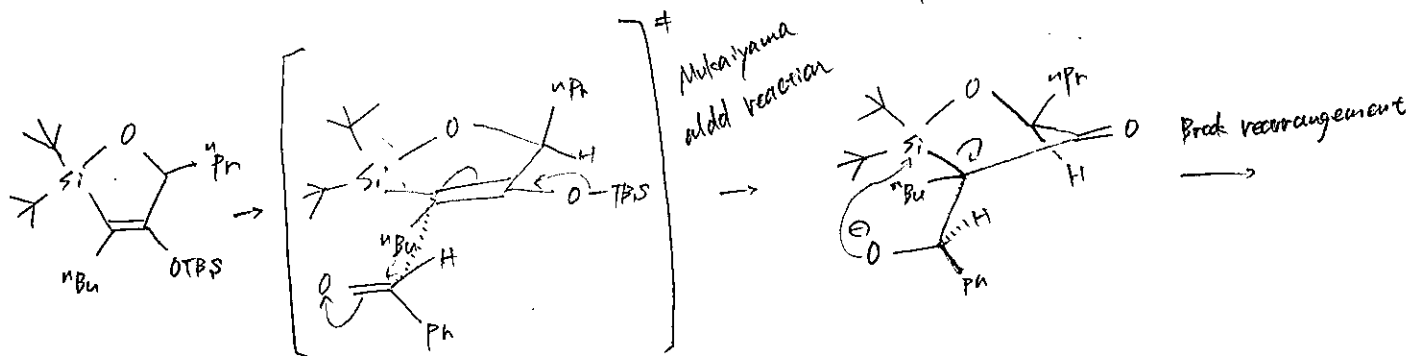 O
Si
nPr
nBu
OTBS
nPr
O
Si
H
O-TBS
nBu
O
H
Ph
‡
Mukaiyama
aldol reaction
nPr
O
Si
O
nBu
H
H
⊖
O
Ph
Brook rearrangement